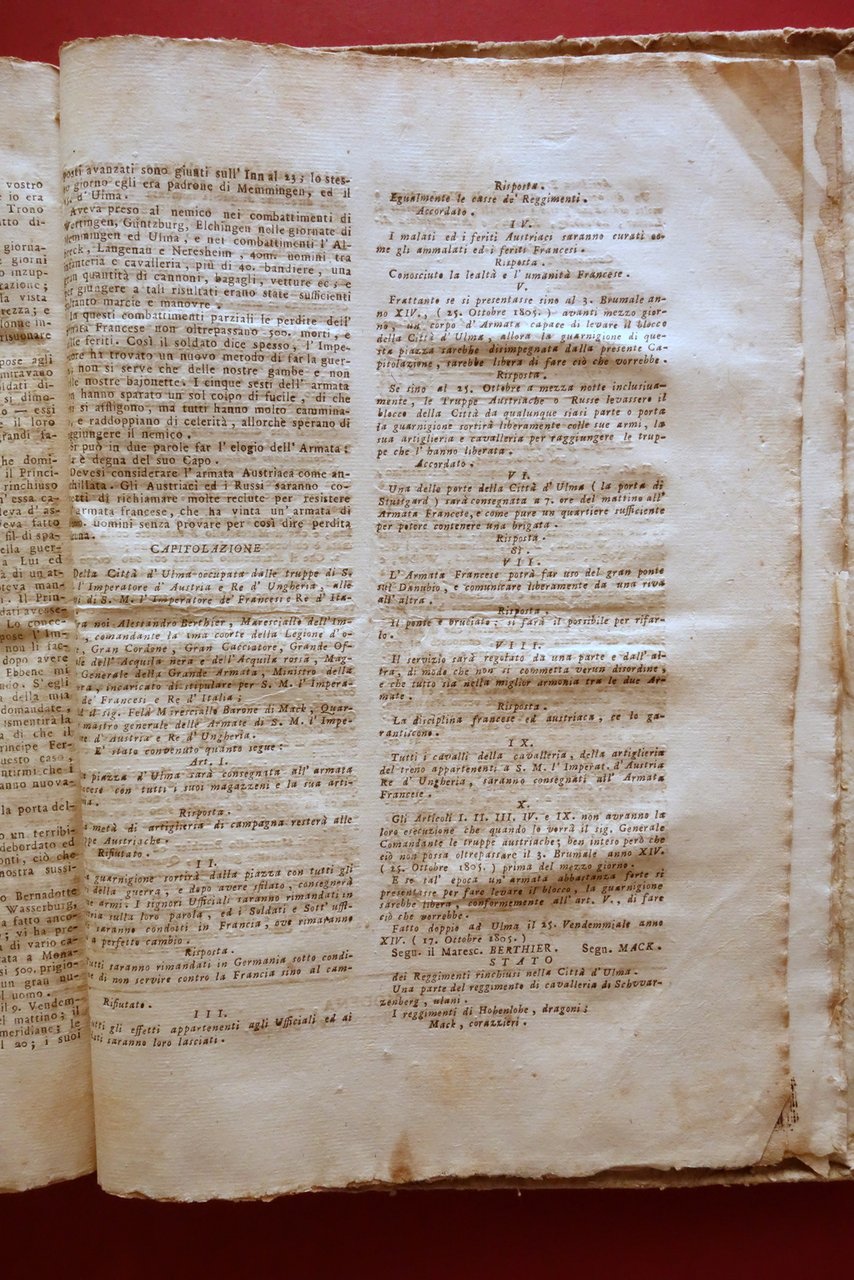 vostro
e io era
Trono
tto di-
giorna-
giorni
o inzup-
azione;
la vista
rezza; e
lonne in-
risuonare
pose agli
miravano
ldati di-
si dimo-
o — essi
il loro
randi fa-
he domi-
il Princi-
rinchiuso
n' essa ca-
leva d' as-
eva fatto
fil di spa-
ella guer-
a Lui ed
à di un at-
teva man-
il Prin-
dati avesse-
Lo conce-
pose l' Im-
non li fac-
dopo avere
Ebbene mi
S' egli
della mia
domandate,
smentirla
a di che il
rincipe Fer-
uesto caso,
ntirmi che i
anno nuova-
la porta del-
o un terribi-
debordato ed
onti, ciò che
nostra sussi-
o Bernadotte
Wasserburg,
a fatto anco-
; vi ha pre-
a di vario ca-
ata a Mona-
si 500. prigio-
un gran nu-
l uomo.
il 9. Vendem-
el mattino; il
meridiane; le
l 20; i suoi
posti avanzati sono giunti sull' Inn al 23; lo stes-
so giorno egli era padrone di Memmingen, ed il
d' Ulma.
Aveva preso al nemico nei combattimenti di
Wertingen, Güntzburg, Elchingen nelle giornate di
Memmingen ed Ulma, e nei combattimenti d' Al-
beck, Langenau e Neresheim, 40m. uomini tra
infanteria e cavalleria, più di 40. bandiere, una
gran quantità di cannoni, bagagli, vetture ec; e
per giungere a tali risultati erano state sufficienti
soltanto marcie e manovre.
In questi combattimenti parziali le perdite dell'
armata Francese non oltrepassano 500. morti, e
mille feriti. Così il soldato dice spesso, l' Impe-
ratore ha trovato un nuovo metodo di far la guer-
non si serve che delle nostre gambe e non
delle nostre bajonette. I cinque sesti dell' armata
n hanno sparato un sol colpo di fucile, di che
si affligono, ma tutti hanno molto cammina-
e raddoppiano di celerità, allorchè sperano di
aggiungere il nemico.
Si può in due parole far l' elogio dell' Armata:
è degna del suo Capo.
Devesi considerare l' armata Austriaca come an-
nichilata. Gli Austriaci ed i Russi saranno co-
stretti di richiamare molte reclute per resistere
l' armata francese, che ha vinta un' armata di
uomini senza provare per così dire perdita
CAPITOLAZIONE
Della Città d' Ulma occupata dalle truppe di S.
l' Imperatore d' Austria e Re d' Ungheria, alle
di S. M. l' Imperatore de' Francesi e Re d' Ita-
noi Alessandro Berthier, Maresciallo dell' Im-
, comandante la 1ma coorte della Legione d' o-
, Gran Cordone, Gran Cacciatore, Grande Of-
dell' Acquila nera e dell' Acquila rossa, Mag-
Generale della Grande Armata, Ministro della
, incaricato di stipulare per S. M. l' Impera-
de' Francesi e Re d' Italia;
il sig. Feld Maresciallo Barone di Mack, Quar-
mastro generale delle Armate di S. M. l' Impe-
d' Austria e Re d' Ungheria.
E' stato convenuto quanto segue:
Art. I.
piazza d' Ulma sarà consegnata all' armata
cese con tutti i suoi magazzeni e la sua arti-
Risposta.
metà di artiglieria di campagna resterà alle
Austriache.
Rifiutato.
II.
guarnigione sortirà dalla piazza con tutti gli
della guerra, e dopo avere sfilato, consegnerà
armi. I signori Ufficiali saranno rimandati in
sulla loro parola, ed i Soldati e Sott' uffi-
saranno condotti in Francia, ove rimaranno
a perfetto cambio.
Risposta.
Tutti saranno rimandati in Germania sotto condi-
di non servire contro la Francia sino al cam-
Rifiutato.
III.
Tutti gli effetti appartenenti agli Ufficiali ed ai
saranno loro lasciati.
Risposta.
Egualmente le casse de' Reggimenti.
Accordato.
IV.
I malati ed i feriti Austriaci saranno curati co-
me gli ammalati ed i feriti Francesi.
Risposta.
Conosciuto la lealtà e l' umanità Francese.
V.
Frattanto se si presentasse sino al 3. Brumale an-
no XIV., ( 25. Ottobre 1805. ) avanti mezzo gior-
no, un corpo d' Armata capace di levare il blocco
della Città d' Ulma, allora la guarnigione di que-
sta piazza sarebbe disimpegnata dalla presente Ca-
pitolazione, sarebbe libera di fare ciò che vorrebbe.
Risposta.
Se sino al 25. Ottobre a mezza notte inclusiva-
mente, le Truppe Austriache o Russe levassero il
blocco della Città da qualunque siasi parte o porta
la guarnigione sortirà liberamente colle sue armi, la
sua artiglieria e cavalleria per raggiungere le trup-
pe che l' hanno liberata.
Accordato.
VI.
Una delle porte della Città d' Ulma ( la porta di
Stutfgard ) sarà consegnata a 7. ore del mattino all'
Armata Francese, e come pure un quartiere sufficiente
per potere contenere una brigata.
Risposta.
Sì.
VII.
L' Armata Francese potrà far uso del gran ponte
sul Danubio, e comunicare liberamente da una riva
all' altra.
Risposta.
Il ponte è bruciato: si farà il possibile per rifar-
lo.
VIII.
Il servizio sarà regolato da una parte e dall' al-
tra, di modo che non si commetta verun disordine,
e che tutto sia nella miglior armonia tra le due Ar-
mate.
Risposta.
La disciplina francese ed austriaca, ce lo ga-
rantiscono.
IX.
Tutti i cavalli della cavalleria, della artiglieria
del treno appartenenti a S. M. l' Imperat. d' Austria
Re d' Ungheria, saranno consegnati all' Armata
Francese.
X.
Gli Articoli I. II. III. IV. e IX. non avranno la
loro esecuzione che quando lo vorrà il sig. Generale
Comandante le truppe austriache; ben inteso però che
ciò non possa oltrepassare il 3. Brumale anno XIV.
( 25. Ottobre 1805. ) prima del mezzo giorno.
E se tal' epoca un' armata abbastanza forte si
presentasse per fare levare il blocco, la guarnigione
sarebbe libera, conformemente all' art. V., di fare
ciò che vorrebbe.
Fatto doppio ad Ulma il 25. Vendemmiale anno
XIV. ( 17. Ottobre 1805. )
Segn. il Maresc. BERTHIER. Segn. MACK.
STATO
dei Reggimenti rinchiusi nella Città d' Ulma.
Una parte del reggimento di cavalleria di Schvvar-
zenberg, ulani.
I reggimenti di Hohenlohe, dragoni;
Mack, corazzieri.